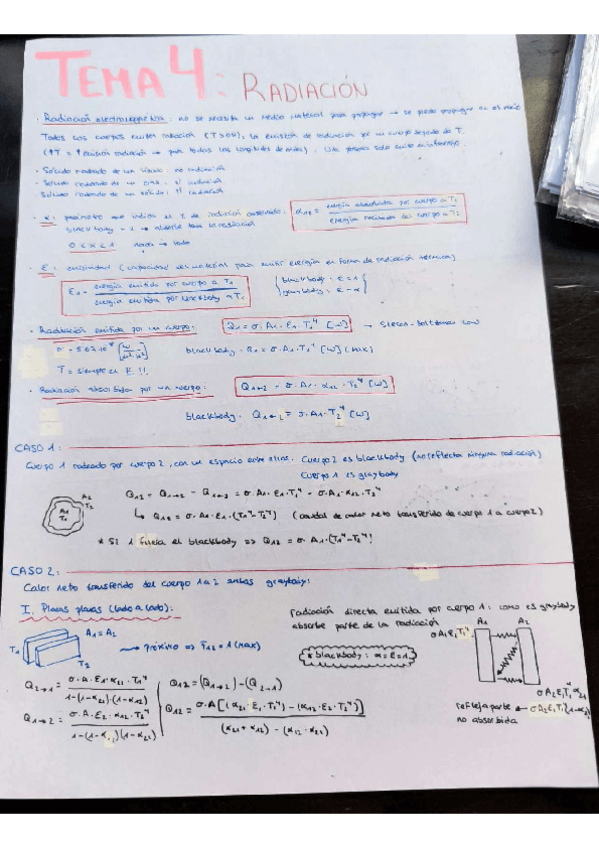 TEMA 4: RADIACIÓN
· Radiación electromagnética: no se necesita un medio material para propagar → se puede propagar en el vacío
Todos los cuerpos emiten radiación (T>0K), la emisión de radiación por un cuerpo depende de T.
(↑T = ↑ emisión radiación → para todas las longitudes de onda).
· Sólido rodeado de un
· Sólido rodeado de un gas: sí radiación
Sólido rodeado de un sólido:
· α: parámetro que indica el % de radiación absorbida.
blackbody absorbe toda la radiación
α12 = energía absorbida por cuerpo a T1 / energía recibida del cuerpo a T2
0 < α ≤ 1 nada → todo
· ε: emisividad (capacidad del material para emitir energía en forma de radiación térmica)
ε1 = energía emitida por cuerpo a T1 / energía emitida por blackbody a T1
blackbody: ε=1
graybody: ε=α
· Radiación emitida por un cuerpo: Q1 = σ·A1·ε1·T1⁴ [W] → Stefan-Boltzmann Law
blackbody: Q1 = σ·A1·T1⁴ [W] (max)
T = siempre en K !!
· Radiación absorbida por un cuerpo: Q1←2 = σ·A1·α12·T2⁴ [W]
blackbody: Q1←2 = σ·A1·T2⁴ [W]
CASO 1:
Cuerpo 1 rodeado por cuerpo 2, con un espacio entre ellos. Cuerpo 2 es blackbody (no refleja ninguna radiación)
Cuerpo 1 es graybody
A2
T2
A1
T1
Q12 = Q1→2 - Q1←2 = σ·A1·ε1·T1⁴ - σ·A1·α12·T2⁴
↳ Q12 = σ·A1·ε1·(T1⁴-T2⁴) (caudal de calor neto transferido de cuerpo 1 a cuerpo 2)
* Si 1 fuera el blackbody => Q12 = σ·A1·(T1⁴-T2⁴)
CASO 2:
Calor neto transferido del cuerpo 1 a 2 ambos graybody:
I. Placas planas (lado a lado):
T1
A1=A2
T2
→ próximo => F12=1 (max)
* blackbody: α=ε=1
radiación directa emitida por cuerpo 1: como es graybody
absorbe parte de la radiación
σA1ε1T1⁴
A1
A2
Q2→1 = σ·A·ε1·α21·T1⁴ / 1-(1-α21)·(1-α12)
Q1→2 = σ·A·ε2·α12·T2⁴ / 1-(1-α12)(1-α21)
Q12=(Q1→2)-(Q2→1)
Q12 = σ·A[(α21·ε1·T1⁴)-(α12·ε2·T2⁴)] / (α21+α12)-(α12·α21)
σA2ε1T1⁴α21
refleja parte ← σA2ε1T1⁴(1-α21)
no absorbida